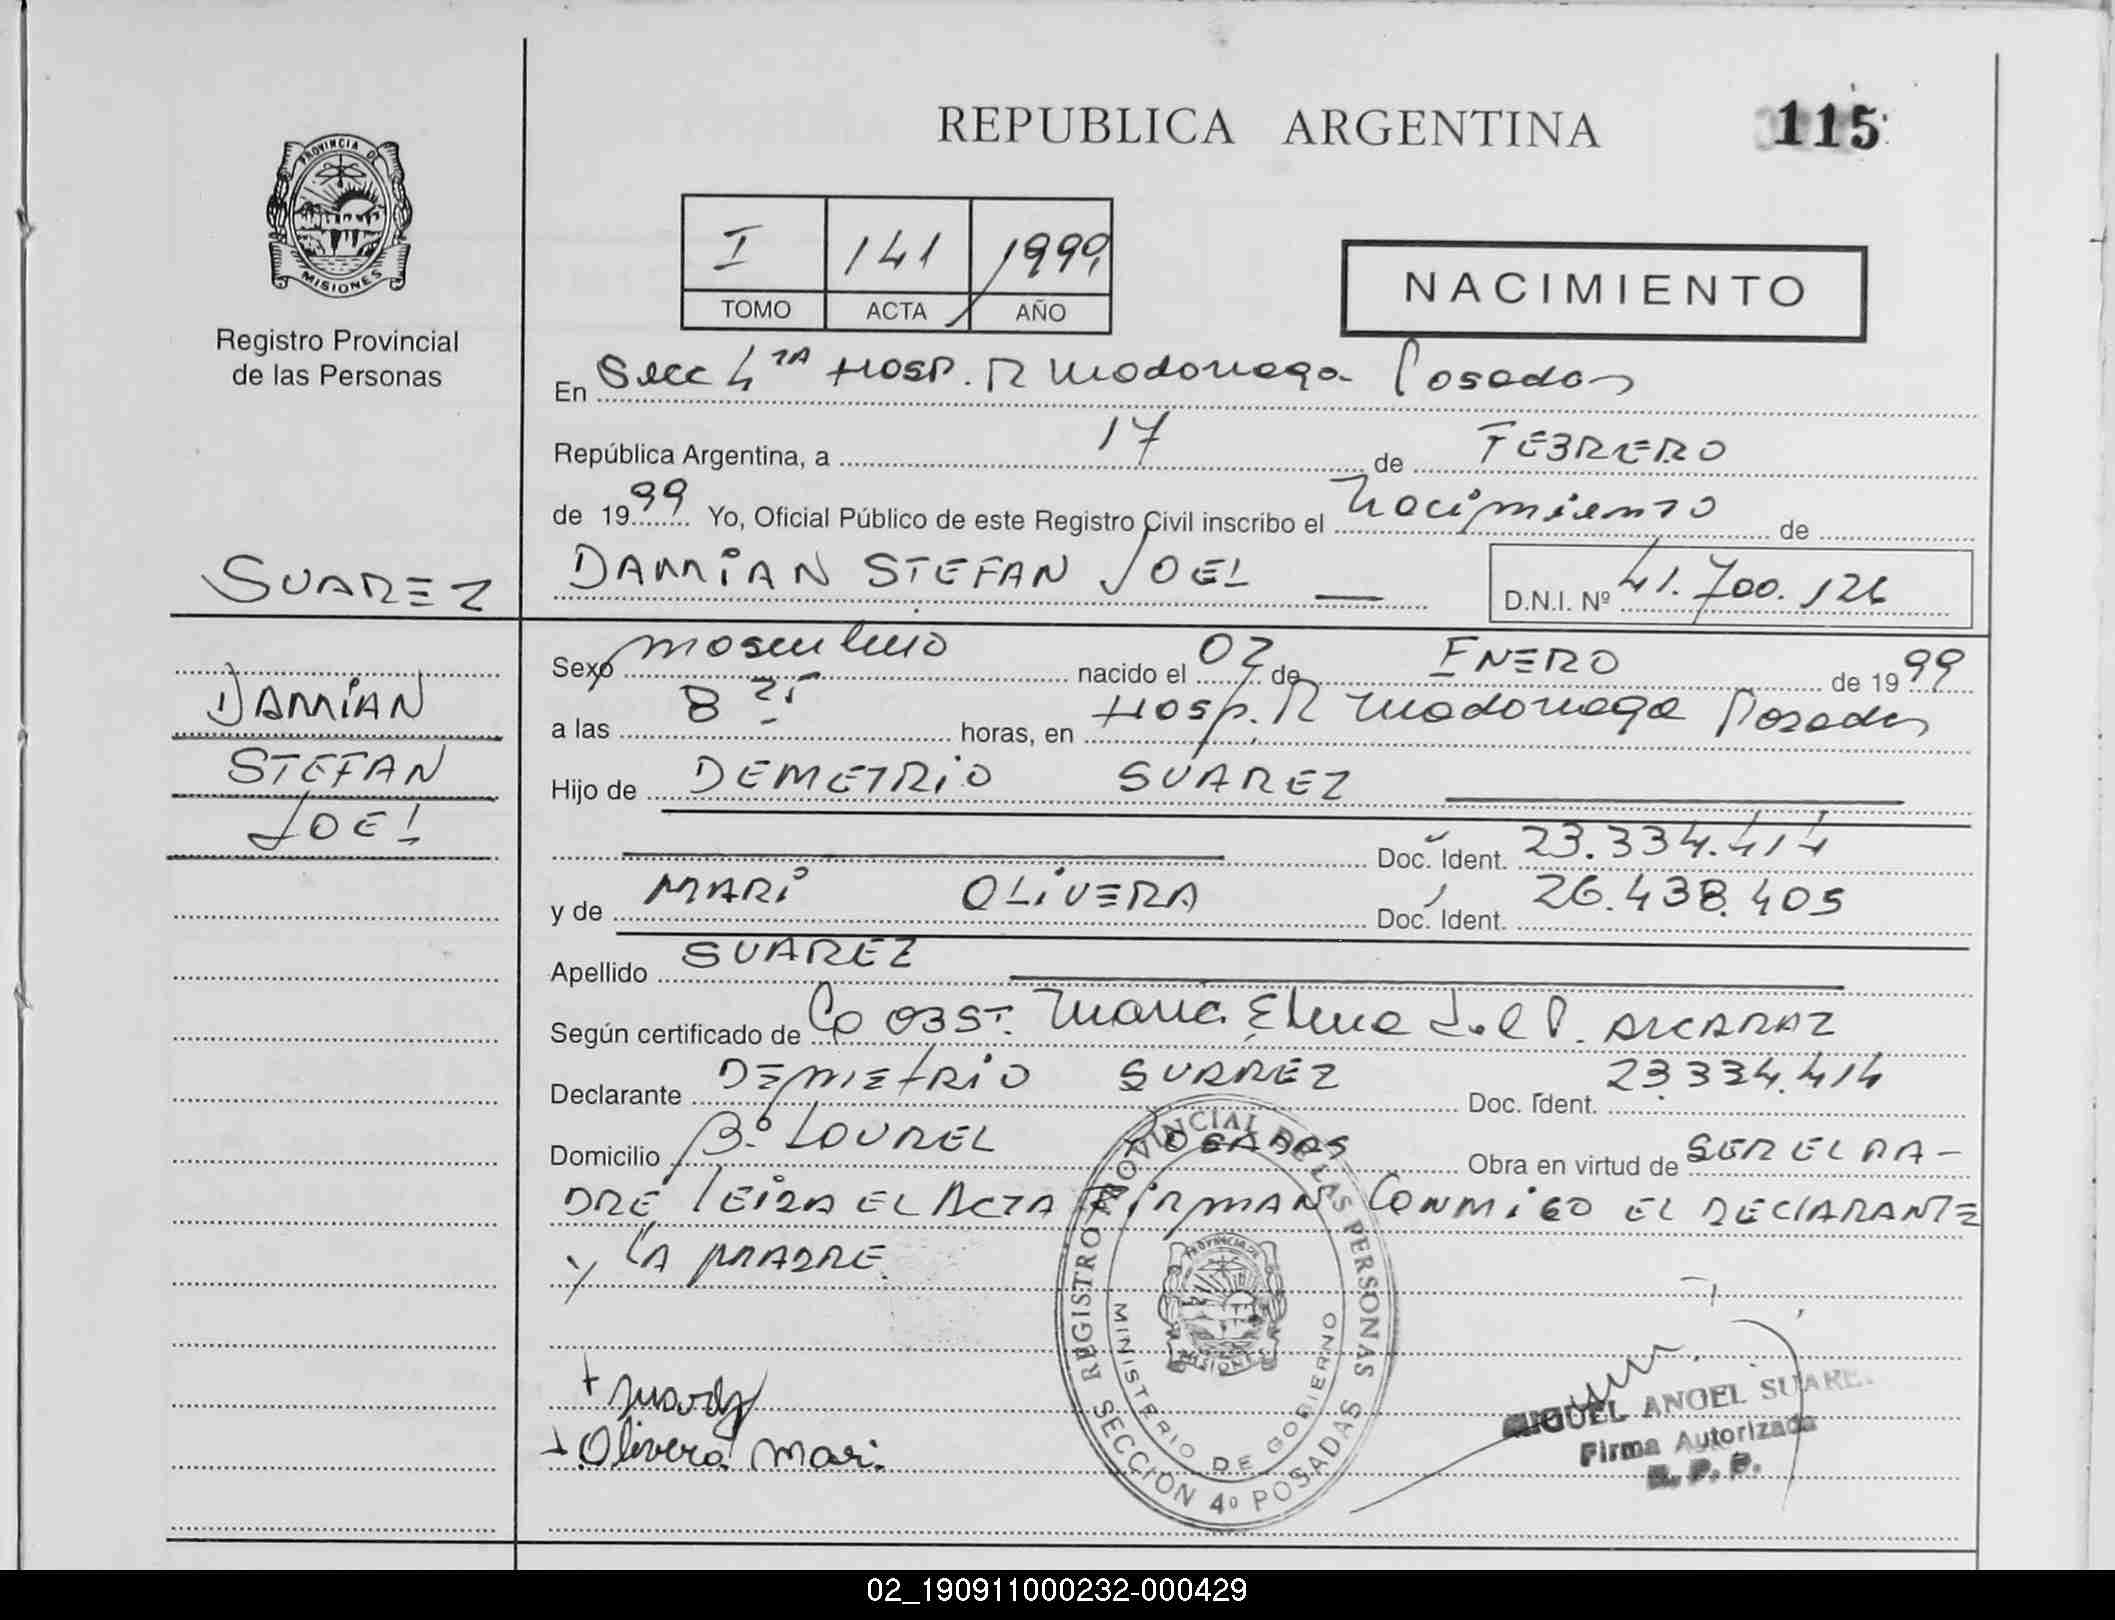 PROVINCIA DE
MISIONES
Registro Provincial
de las Personas
SUAREZ
DAMIAN
STEFAN
JOEL
REPUBLICA ARGENTINA
115
I 141 1999
TOMO ACTA AÑO
NACIMIENTO
En Secc 4TA Hosp. R Madariaga Posadas
República Argentina, a 17 de FEBRERO
de 1999 Yo, Oficial Público de este Registro Civil inscribo el Nacimiento de
DAMIAN STEFAN JOEL D.N.I. Nº 41.700.126
Sexo masculino nacido el 02 de ENERO de 1999
a las 8 horas, en Hosp. R Madariaga Posadas
Hijo de DEMETRIO SUAREZ
Doc. Ident. 23.334.414
y de MARI OLIVERA Doc. Ident. 26.438.405
Apellido SUAREZ
Según certificado de OBST. Maria Elena del P. ALCARAZ
Declarante DEMETRIO SUAREZ Doc. Ident. 23.334.414
Domicilio Bº LOUREL POSADAS Obra en virtud de SER EL PA-
DRE LEIDA EL ACTA FIRMAN CONMIGO EL DECLARANTE
Y LA MADRE
REGISTRO PROVINCIAL DE LAS PERSONAS
MINISTERIO DE GOBIERNO
PROVINCIA DE
MISIONES
SECCION 4º POSADAS
Olivera Mari.
MIGUEL ANGEL SUARE
Firma Autorizada
R. P. P.
02_190911000232-000429